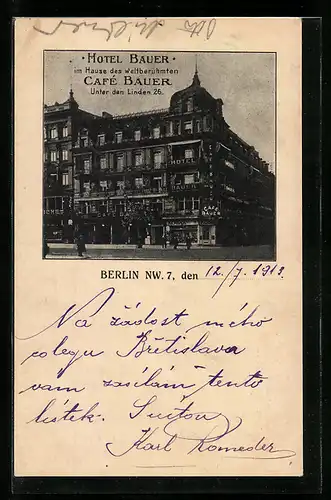 · HOTEL BAUER ·
im Hause des weltberühmten
CAFÉ BAUER
Unter den Linden 26.
HOTEL
BAUER
CAFÉ
BAUER
BERLIN NW. 7, den 12/7. 1912.
Na žádost mého
colegu Břetislava
vám zasílám tento
lístek.
Karl Romeder